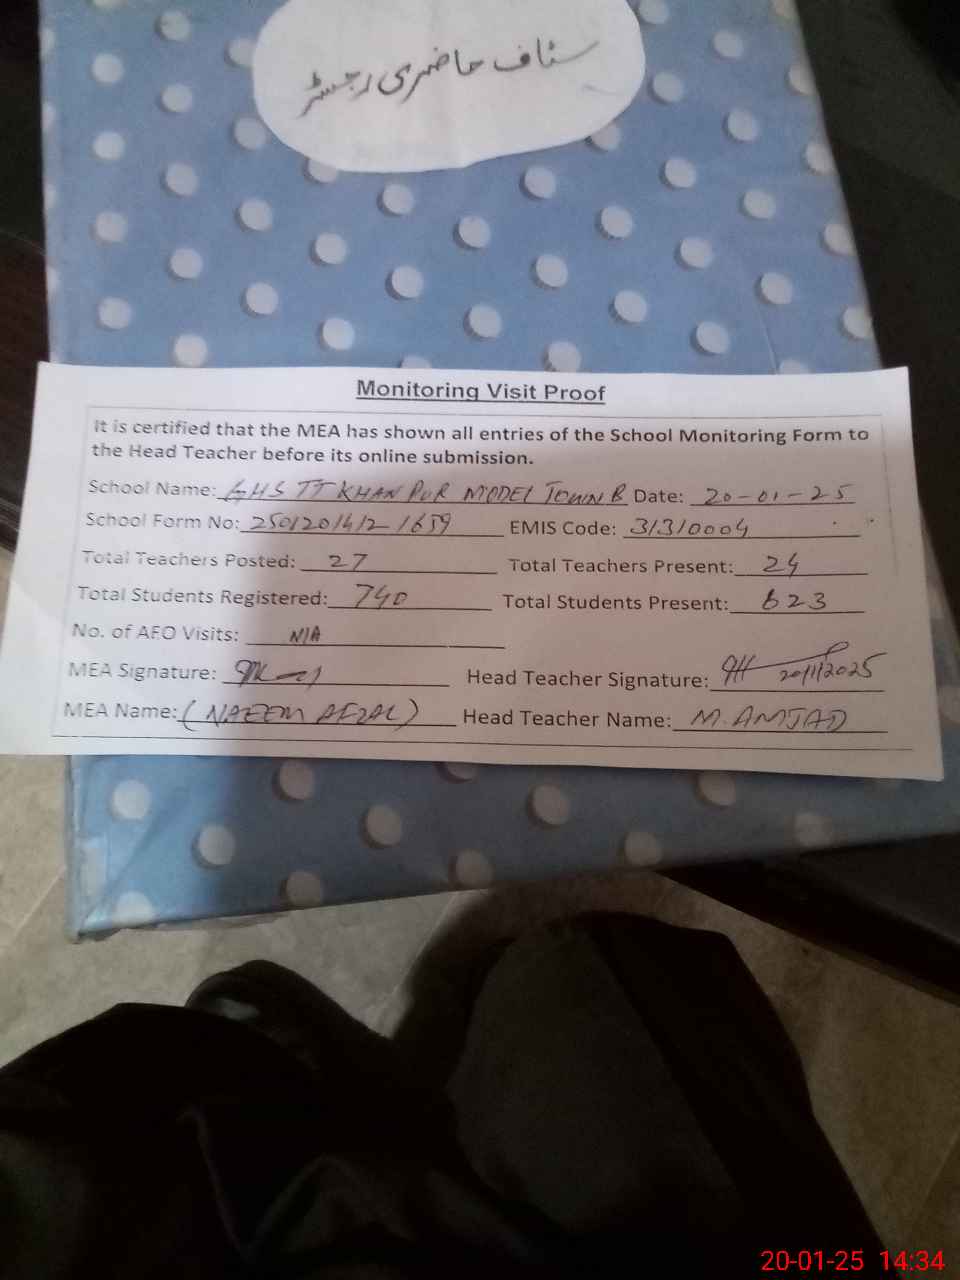 سٹاف حاضری رجسٹر
Monitoring Visit Proof
It is certified that the MEA has shown all entries of the School Monitoring Form to
the Head Teacher before its online submission.
School Name: GHS TT KHAN PUR MODEL TOWN B Date: 20-01-25
School Form No: EMIS Code: 31310004
Total Teachers Posted: 27 Total Teachers Present: 24
Total Students Registered: 740 Total Students Present: 623
No. of AEO Visits: N/A
MEA Signature: Head Teacher Signature: 20/1/2025
MEA Name: (NAEEM AFZAL) Head Teacher Name: M. AMJAD
20-01-25 14:34